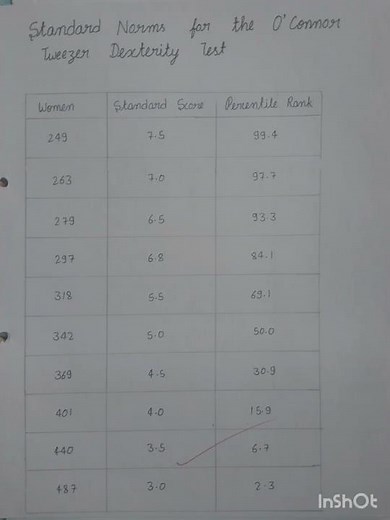 Standard Norms for the O'Connor
Tweezer Dexterity Test
Women Standard Score Percentile Rank
249 7.5 99.4
263 7.0 97.7
279 6.5 93.3
297 6.8 84.1
318 5.5 69.1
342 5.0 50.0
369 4.5 30.9
401 4.0 15.9
440 3.5 6.7
487 3.0 2.3
InShOt